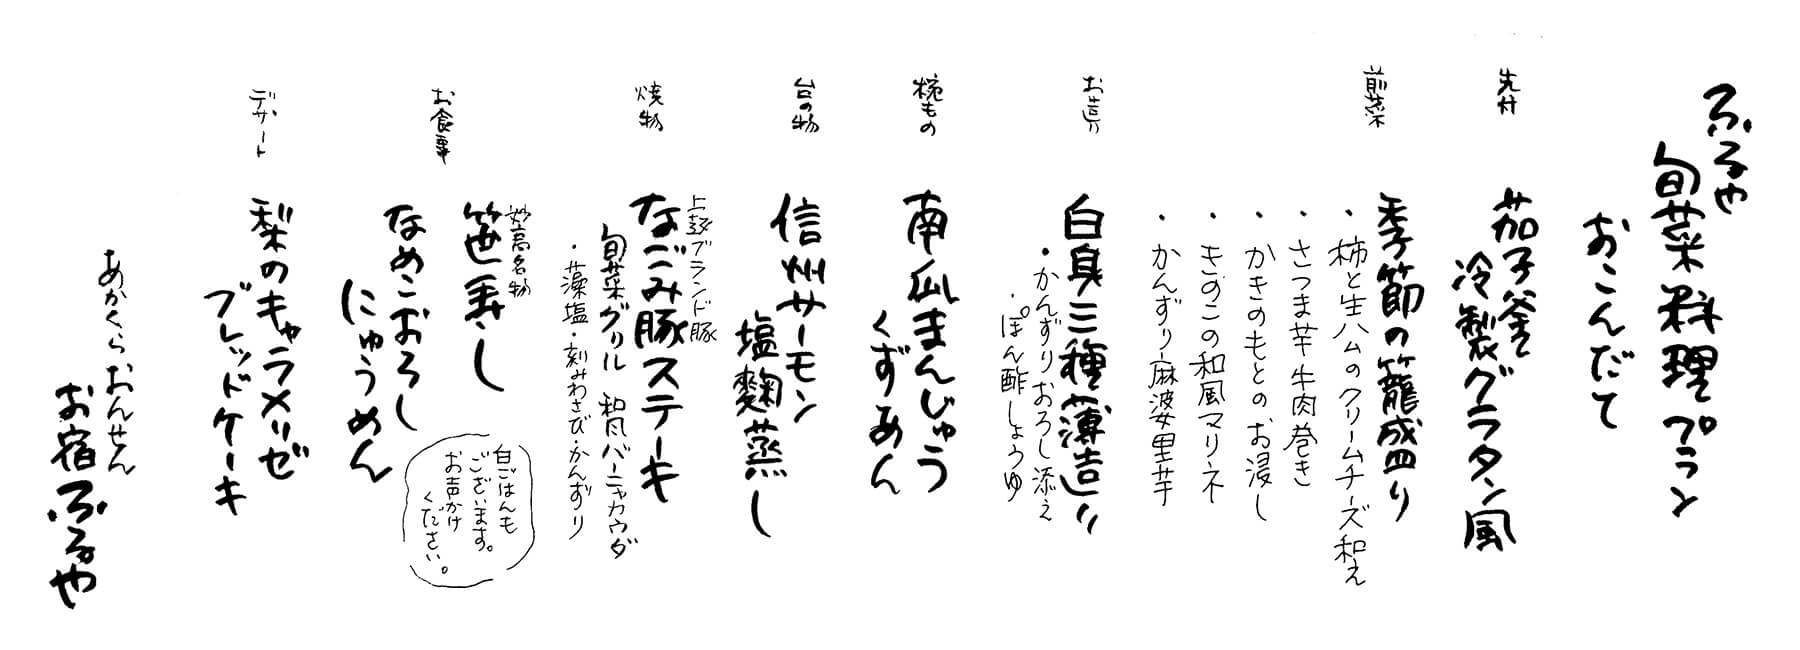 ふるや
旬菜料理プラン
おこんだて
先付
茄子釜
冷製グラタン風
前菜
季節の籠盛り
・柿と生ハムのクリームチーズ和え
・さつま芋牛肉巻き
・かきのもとのお浸し
・きのこの和風マリネ
・かんずり麻婆里芋
お造り
白身三種薄造り
・かんずりおろし添え
・ぽん酢しょうゆ
椀もの
南瓜まんじゅう
くずあん
台の物
信州サーモン
塩麴蒸し
焼物
上越ブランド豚
なごみ豚ステーキ
旬菜グリル 和風バーニャカウダ
・藻塩・刻みわさび・かんずり
お食事
妙高名物
笹寿し
なめこおろし
にゅうめん
白ごはんも
ございます。
お声かけ
ください。
デザート
梨のキャラメリゼ
ブレッドケーキ
あかくらおんせん
お宿ふるや